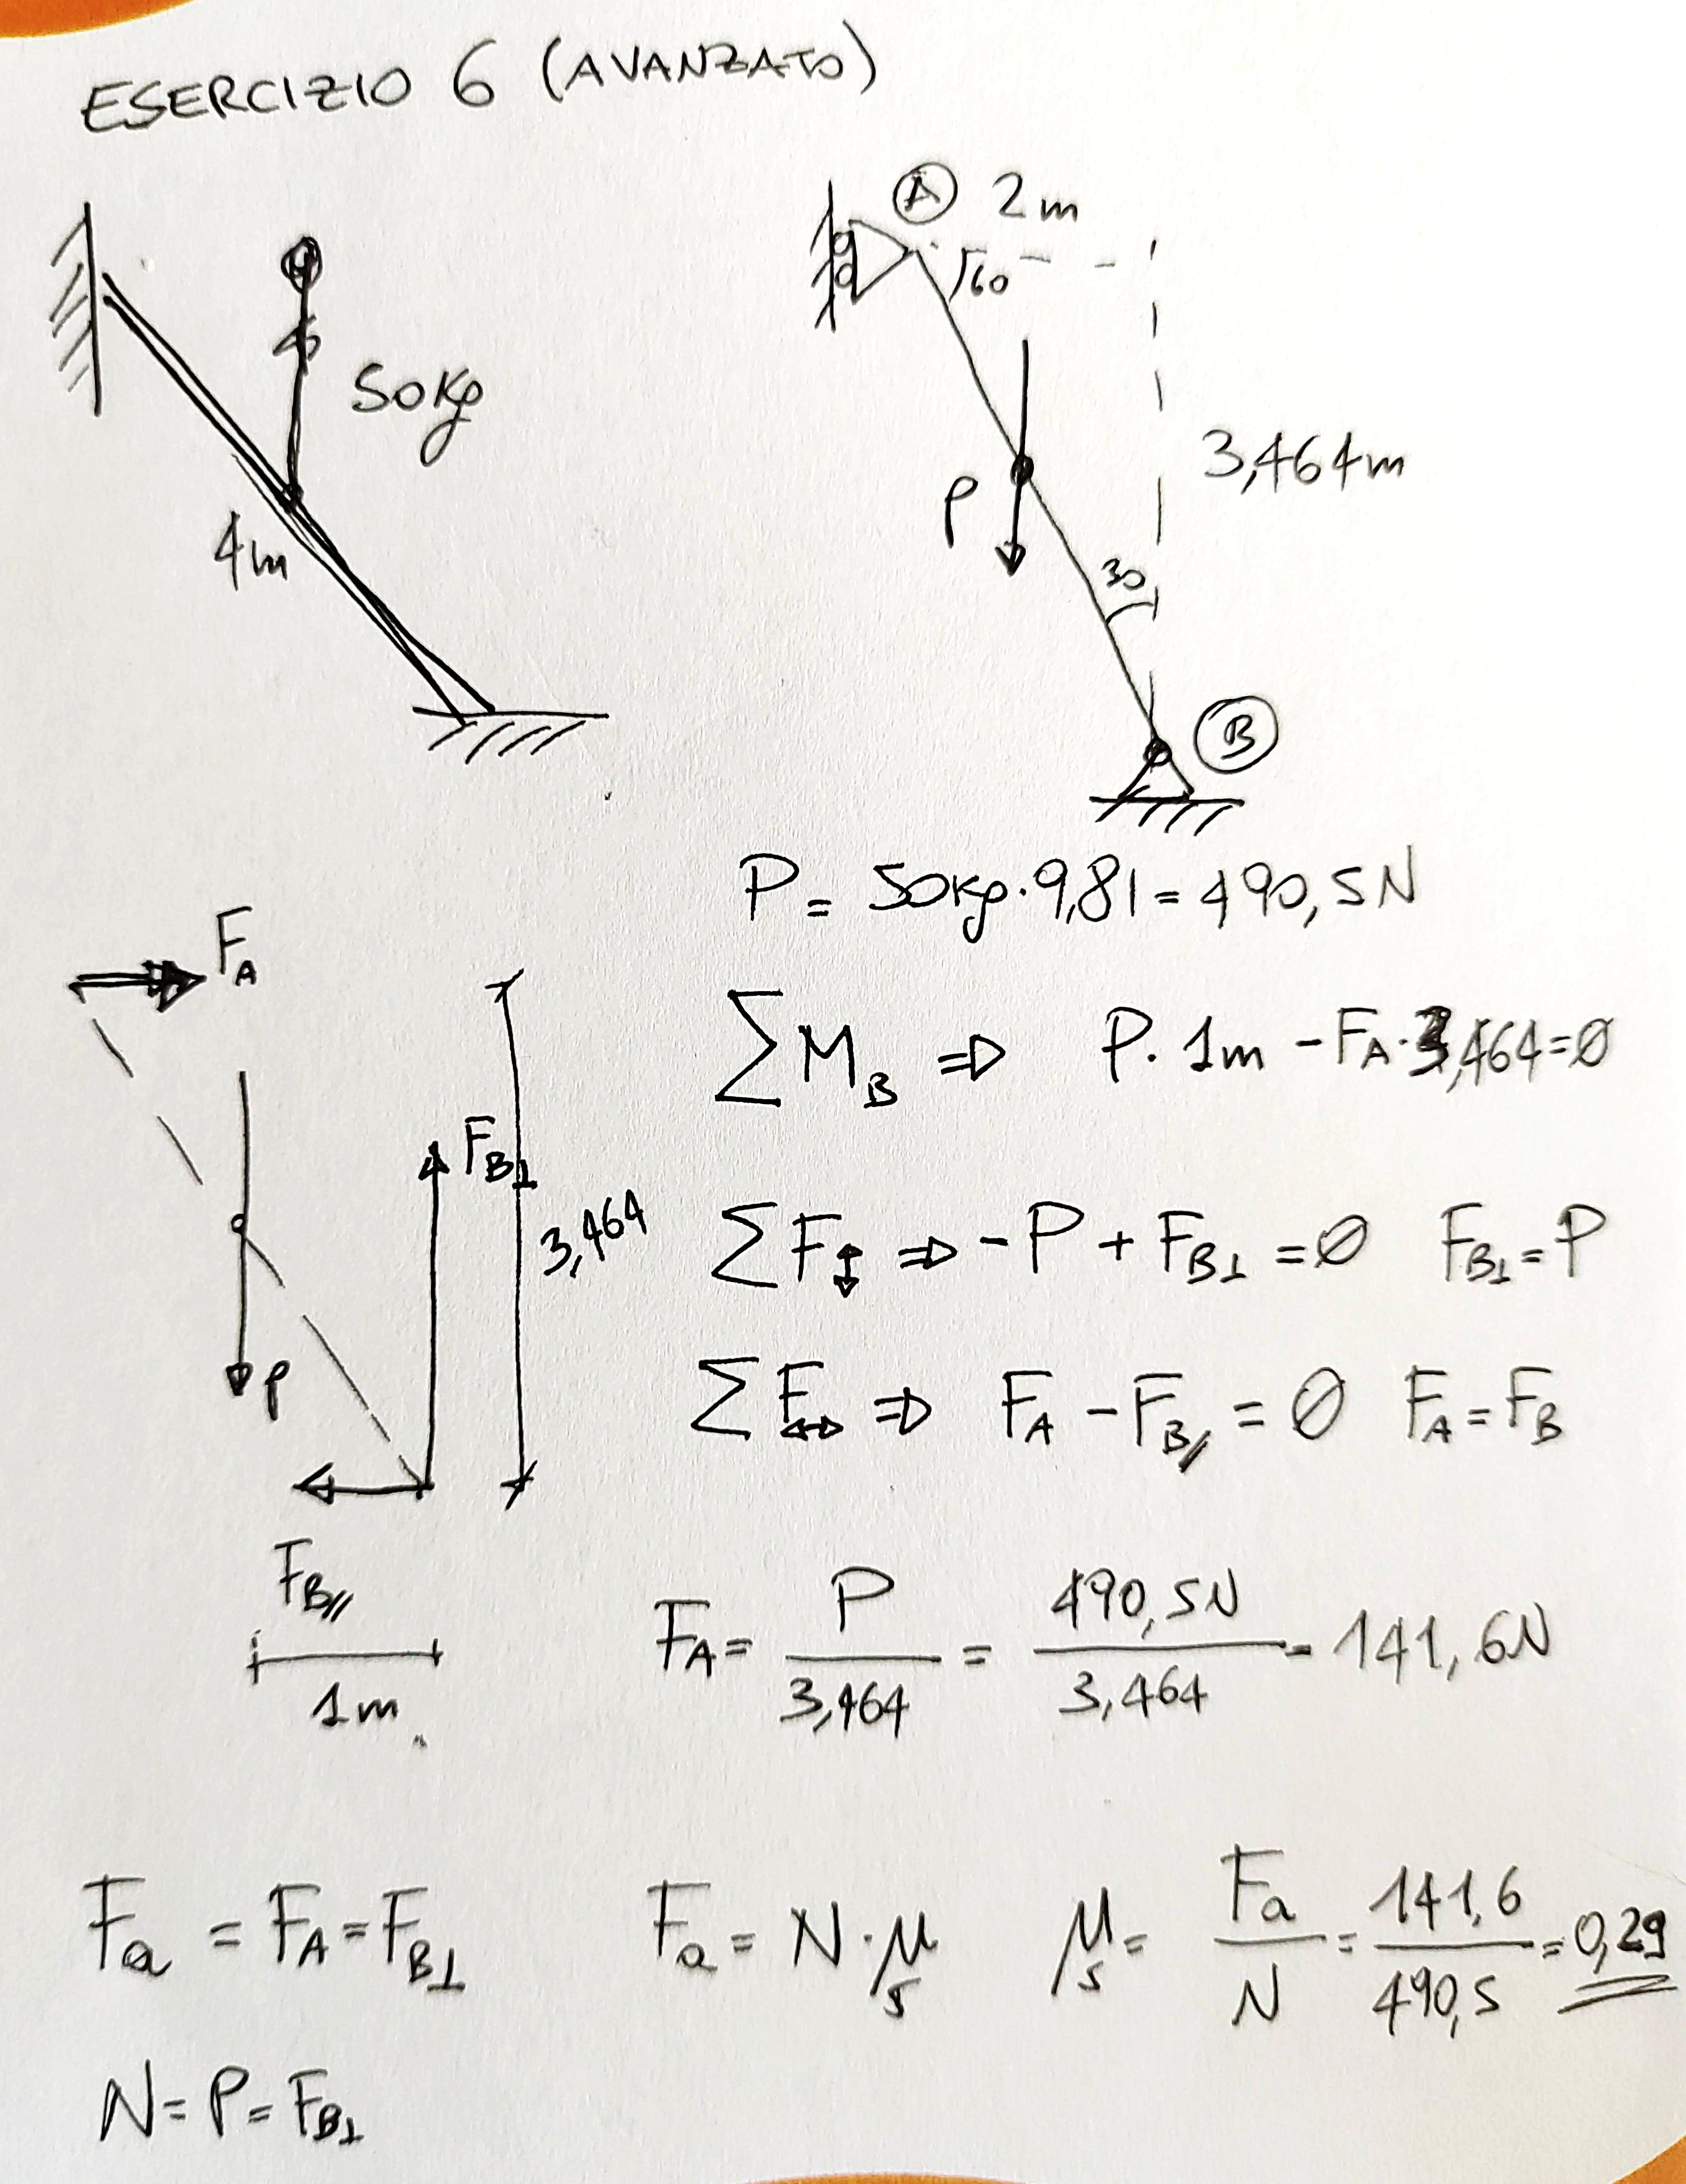 ESERCIZIO 6 (AVANZATO)
50kg
4m
A 2m
60
P
3,464m
30
B
P = 50kg·9,81 = 490,5N
F_A
∑M_B ⇒ P·1m - F_A·3,464=Ø
F_B⊥
3,464
∑F↕ ⇒ -P + F_B⊥ = Ø F_B⊥ = P
P
∑F↔ ⇒ F_A - F_B// = Ø F_A = F_B
F_B//
1m
F_A = P/3,464 = 490,5N/3,464 = 141,6N
F_a = F_A = F_B⊥ F_a = N·μ_s μ_s = F_a/N = 141,6/490,5 = 0,29
N = P = F_B⊥